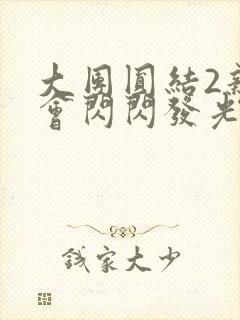 大團圓結2新
會閃閃發光
錢家大少